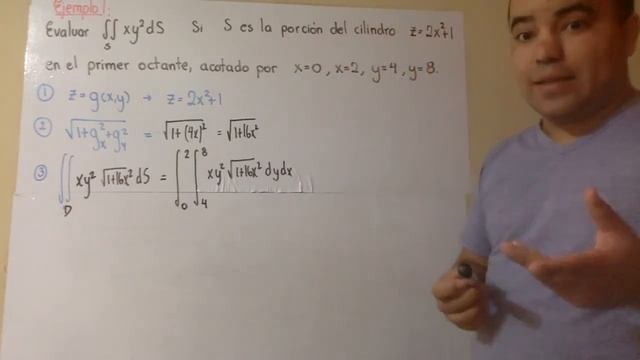 Ejemplo 1:
Evaluar ∬_S xy²dS Si S es la porción del cilindro z=2x²+1
en el primer octante, acotado por x=0, x=2, y=4, y=8.
① z=g(x,y) → z=2x²+1
② √(1+g_x²+g_y²) = √(1+(4x)²) = √(1+16x²)
③ ∬_D xy² √(1+16x²) dS = ∫_0^2 ∫_4^8 xy² √(1+16x²) dydx